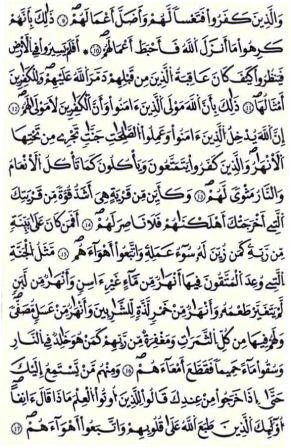 وَالَّذِينَ كَفَرُوا فَتَعْسًا لَهُمْ وَأَضَلَّ أَعْمَالَهُمْ ٩ ذَلِكَ بِأَنَّهُمْ
كَرِهُوا مَا أَنْزَلَ اللَّهُ فَأَحْبَطَ أَعْمَالَهُمْ ١٠ أَفَلَمْ يَسِيرُوا فِي الْأَرْضِ
فَيَنْظُرُوا كَيْفَ كَانَ عَاقِبَةُ الَّذِينَ مِنْ قَبْلِهِمْ دَمَّرَ اللَّهُ عَلَيْهِمْ وَلِلْكَافِرِينَ
أَمْثَالُهَا ١١ ذَلِكَ بِأَنَّ اللَّهَ مَوْلَى الَّذِينَ ءَامَنُوا وَأَنَّ الْكَافِرِينَ لَا مَوْلَى لَهُمْ ١٢
إِنَّ اللَّهَ يُدْخِلُ الَّذِينَ ءَامَنُوا وَعَمِلُوا الصَّالِحَاتِ جَنَّاتٍ تَجْرِي مِنْ تَحْتِهَا
الْأَنْهَارُ وَالَّذِينَ كَفَرُوا يَتَمَتَّعُونَ وَيَأْكُلُونَ كَمَا تَأْكُلُ الْأَنْعَامُ
وَالنَّارُ مَثْوًى لَهُمْ ١٣ وَكَأَيِّنْ مِنْ قَرْيَةٍ هِيَ أَشَدُّ قُوَّةً مِنْ قَرْيَتِكَ
الَّتِي أَخْرَجَتْكَ أَهْلَكْنَاهُمْ فَلَا نَاصِرَ لَهُمْ ١٤ أَفَمَنْ كَانَ عَلَى بَيِّنَةٍ
مِنْ رَبِّهِ كَمَنْ زُيِّنَ لَهُ سُوءُ عَمَلِهِ وَاتَّبَعُوا أَهْوَاءَهُمْ ١٥ مَثَلُ الْجَنَّةِ
الَّتِي وُعِدَ الْمُتَّقُونَ فِيهَا أَنْهَارٌ مِنْ مَاءٍ غَيْرِ ءَاسِنٍ وَأَنْهَارٌ مِنْ لَبَنٍ
لَمْ يَتَغَيَّرْ طَعْمُهُ وَأَنْهَارٌ مِنْ خَمْرٍ لَذَّةٍ لِلشَّارِبِينَ وَأَنْهَارٌ مِنْ عَسَلٍ مُصَفًّى
وَلَهُمْ فِيهَا مِنْ كُلِّ الثَّمَرَاتِ وَمَغْفِرَةٌ مِنْ رَبِّهِمْ كَمَنْ هُوَ خَالِدٌ فِي النَّارِ
وَسُقُوا مَاءً حَمِيمًا فَقَطَّعَ أَمْعَاءَهُمْ ١٦ وَمِنْهُمْ مَنْ يَسْتَمِعُ إِلَيْكَ
حَتَّى إِذَا خَرَجُوا مِنْ عِنْدِكَ قَالُوا لِلَّذِينَ أُوتُوا الْعِلْمَ مَاذَا قَالَ ءَانِفًا
أُولَئِكَ الَّذِينَ طَبَعَ اللَّهُ عَلَى قُلُوبِهِمْ وَاتَّبَعُوا أَهْوَاءَهُمْ ١٧